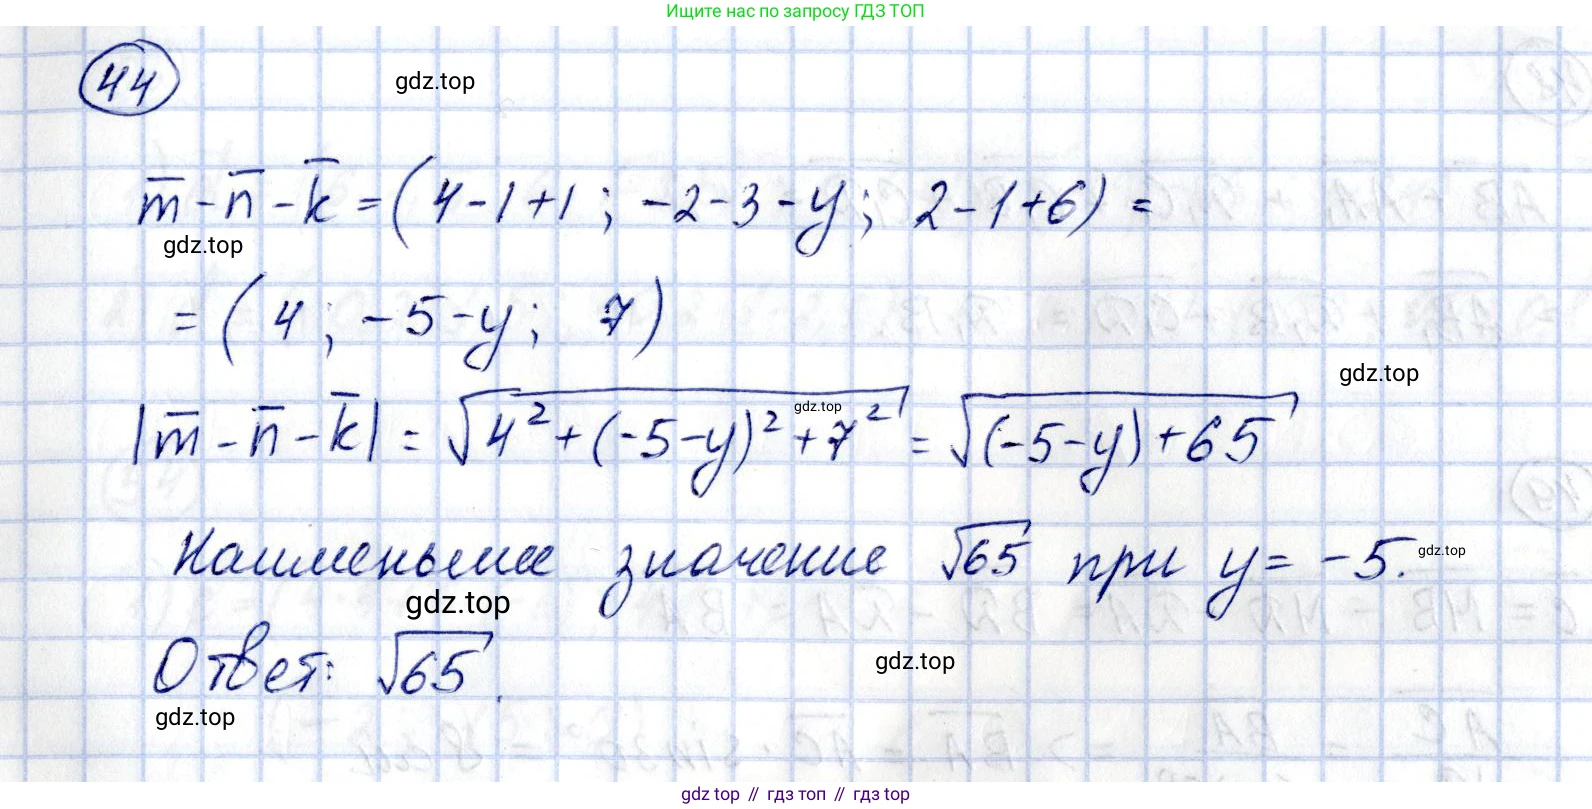 Ищите нас по запросу ГДЗ ТОП
44
gdz.top
m̅ - n̅ - k̅ = (4-1+1; -2-3-y; 2-1+6) =
gdz.top
= (4; -5-y; 7)
gdz.top
|m̅ - n̅ - k̅| = √(4² + (-5-y)² + 7²) = √((-5-y)+65)
gdz.top
Наименьшее значение √65 при y = -5.
gdz.top
gdz.top
Ответ: √65.
gdz.top
gdz.top
gdz top // гдз топ // гдз top